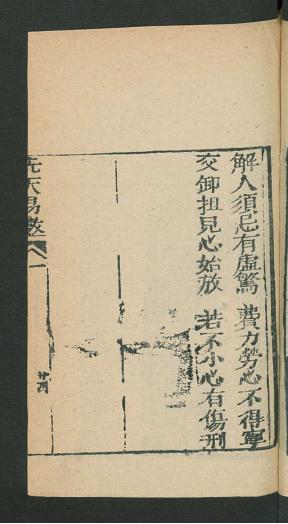 解人須忌有虛驚　費力勞心不得寧
交卸担見心始放　若不小心有傷刑
先天易数
八一
廿四